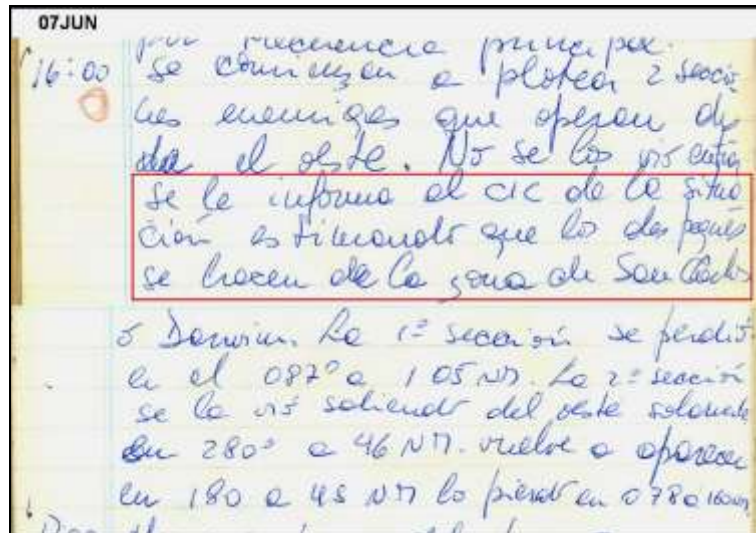 07JUN
por frecuencia principal.
16:00 Se comienzan a plotear 2 seccio
nes enemigas que operan des
de el oeste. No se los vio entrar
Se le informa al CIC de la situa
ción estimando que los despegues
se hacen de la zona de San Carlos
o Darwin. La 1ª sección se perdió
en el 087º a 105 NM. La 2ª sección
se la vió saliendo del oeste solamente
en 280º a 46 NM. vuelve a aparecer
en 180 a 45 NM lo pierdo en 078 a 160NM